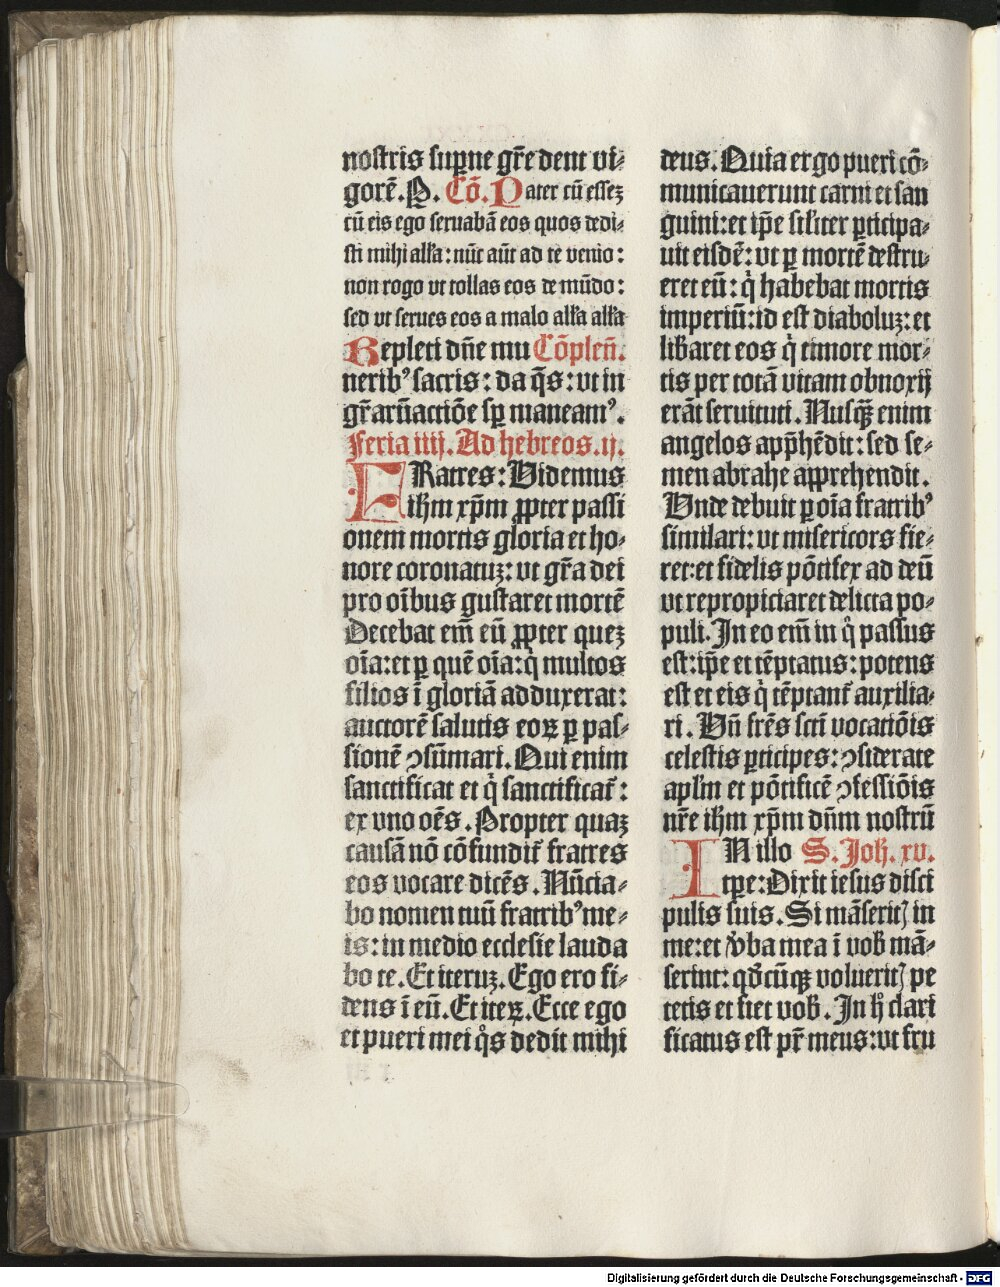 nostris sup̱ne gr̄e dent vi⸗
gorē. P. Cō. Pater cū esseꝫ
cū eis ego seruabā eos quos dedi⸗
sti mihi alľa: nūc aūt ad te venio:
non rogo vt tollas eos de mūdo:
sed vt serues eos a malo alľa alľa
Repleti dn̄e mu Cōplen̄.
nerib⁹ sacris: da q̄s: vt in
gr̄arū actiōe sꝑ maneam⁹.
Feria iiij. Ad hebreos. ij.
FRatres: Videmus
ihm̄ xp̄m ꝓpter passi
onem mortis gloria et ho⸗
nore coronatuꝫ: vt gr̄a dei
pro oībus gustaret mortē
Decebat em̄ eū ꝓpter queꝫ
oīa: et ꝑ quē oīa: qͥ multos
filios ī gloriā adduxerat:
auctorē salutis eoꝝ ꝑ pas⸗
sionē ꝯsūmari. Qui enim
sanctificat et qͥ sanctificant̄:
ex vno oēs. Propter quaꝫ
causā nō cōfundit̄ fratres
eos vocare dicēs. Nūcia⸗
bo nomen tuū fratrib⁹ me⸗
is: in medio ecclesie lauda
bo te. Et iteruꝫ. Ego ero fi⸗
dens ī eū. Et iteꝝ. Ecce ego
et pueri mei qͦs dedit mihi
deus. Quia ergo pueri cō⸗
municauerunt carni et san
guini: et ip̄e siľiter ꝑticipa⸗
uit eisdē: vt ꝑ mortē destru⸗
eret eū: qͥ habebat mortis
imperiū: id est diaboluꝫ: et
liƀaret eos qͥ timore mor⸗
tis per totā vitam obnoxij
erāt seruituti. Nusq̄ꝫ enim
angelos app̄hēdit: sed se⸗
men abrahe apprehendit.
Vnde debuit ꝑ oīa fratrib⁹
similari: vt misericors fie⸗
ret: et fidelis pōtifex ad deū
vt repropiciaret delicta po⸗
puli. In eo em̄ in qͦ passus
est: ip̄e et tēptatus: potens
est et eis qͥ tēptant̄ auxilia⸗
ri. Vn̄ frēs scti vocatiōis
celestis ꝑticipes: ꝯsiderate
apľm et pōtificē ꝯfessiōis
nr̄e ihm̄ xp̄m dn̄m nostrū
IN illo S. Joh. xv.
tꝑe: Dixit iesus disci
pulis suis. Si māseritꝭ in
me: et v̓ba mea ī voƀ mā⸗
serint: qd̄cūqꝫ volueritꝭ pe
tetis et fiet voƀ. In hͦ clari
ficatus est pr̄ meus: vt fru
Digitalisierung gefördert durch die Deutsche Forschungsgemeinschaft - DFG